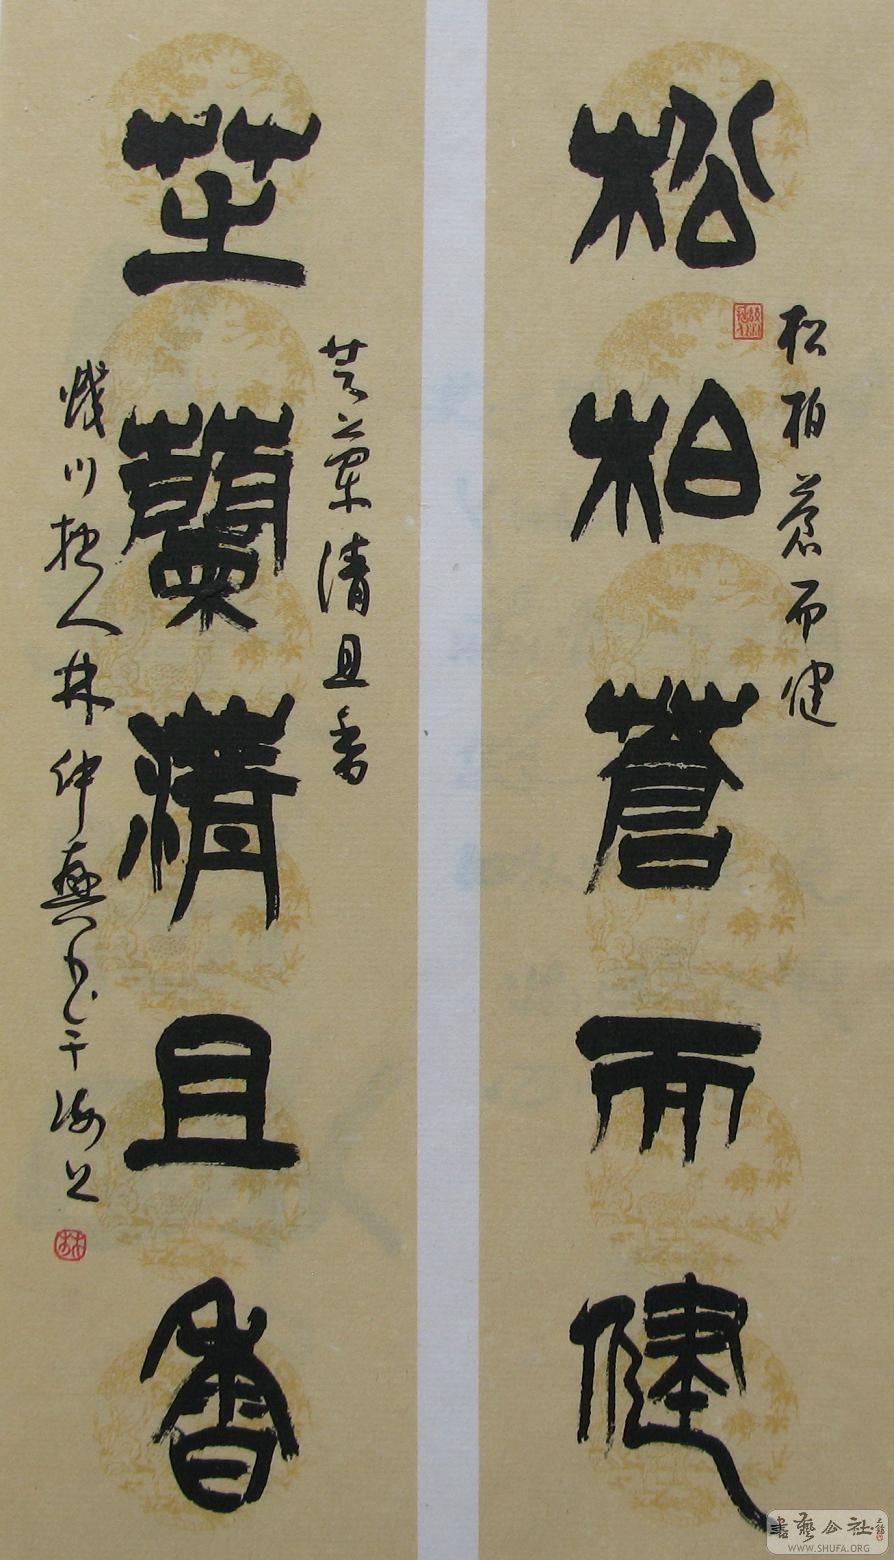 松柏蒼而健
松柏蒼而健
芝蘭清且香
芝蘭清且香
川拙人林仲興書于海上
書藝公社
WWW.SHUFA.ORG